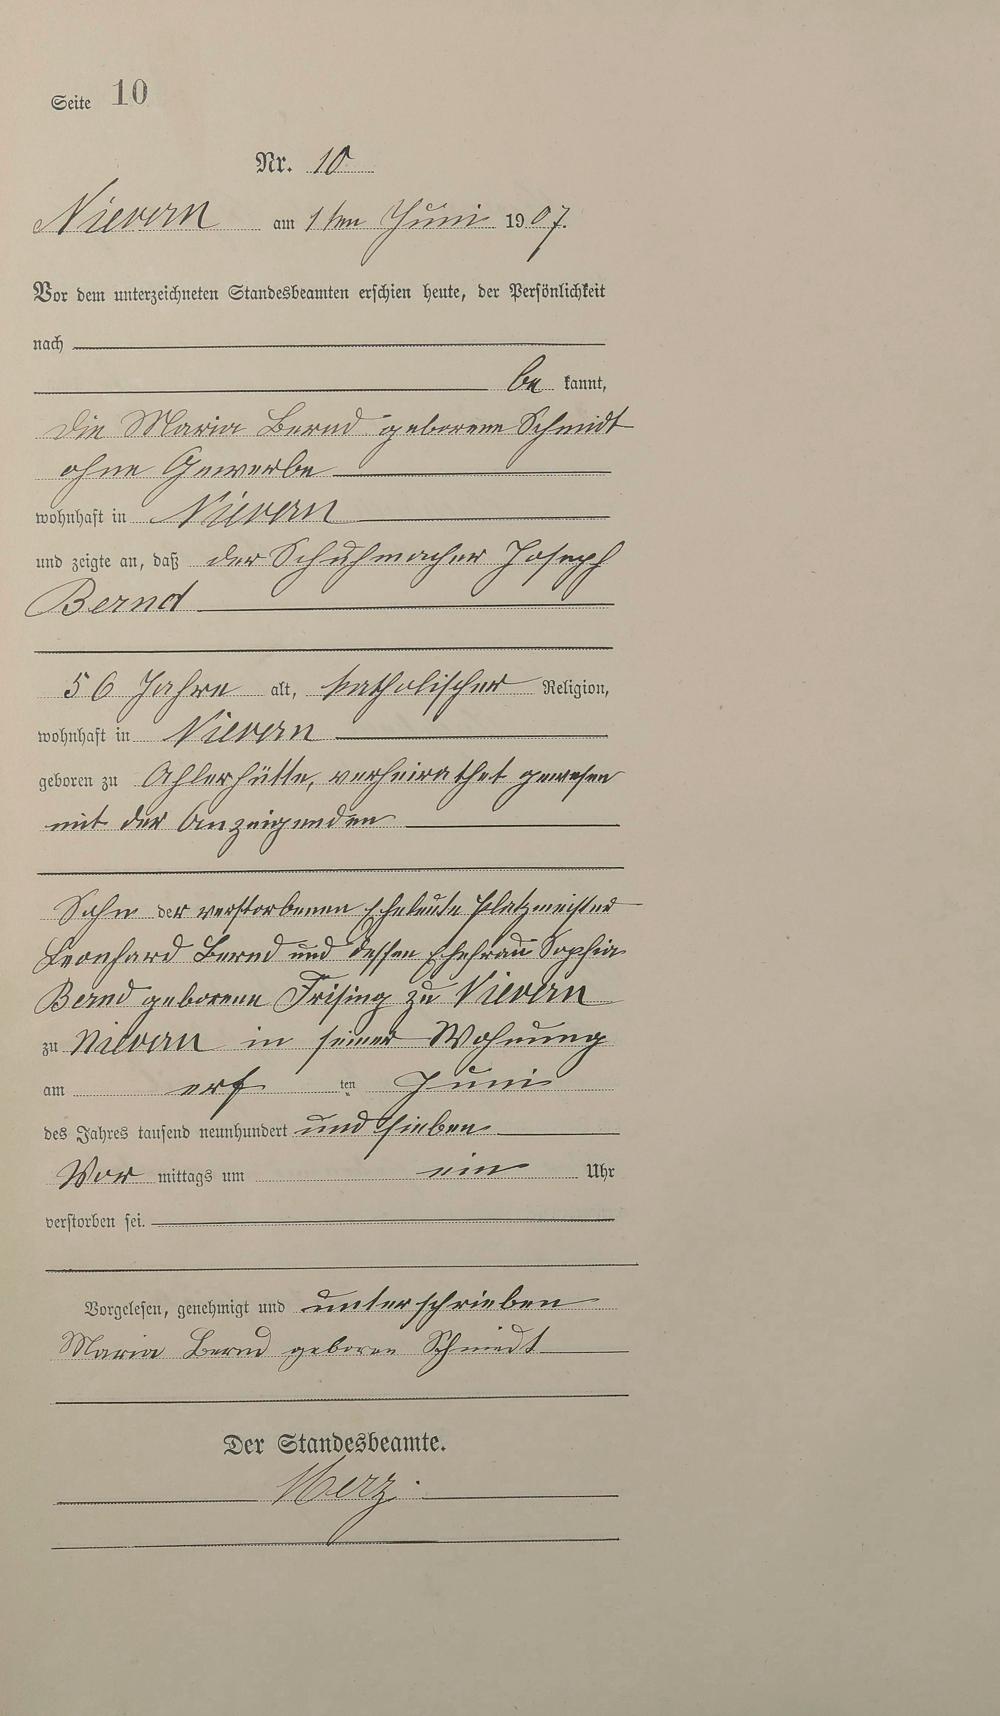 Seite 10
Nr. 10
Nievern am 1ten Juni 1907.
Vor dem unterzeichneten Standesbeamten erschien heute, der Persönlichkeit
nach
be kannt,
die Maria Bernd geborene Schmidt
ohne Gewerbe
wohnhaft in Nievern
und zeigte an, daß der Schuhmacher Joseph
Bernd
56 Jahre alt, katholischer Religion,
wohnhaft in Nievern
geboren zu Ahlerhütte, verheirathet gewesen
mit der Anzeigenden
Sohn der verstorbenen Eheleute Platzmeister
Leonhard Bernd und dessen Ehefrau Sophia
Bernd geborene Frising zu Nievern
zu Nievern in seiner Wohnung
am ersten Juni
des Jahres tausend neunhundert und sieben
Vor mittags um ein Uhr
verstorben sei.
Vorgelesen, genehmigt und unterschrieben
Maria Bernd geboren Schmidt
Der Standesbeamte.
Merz.